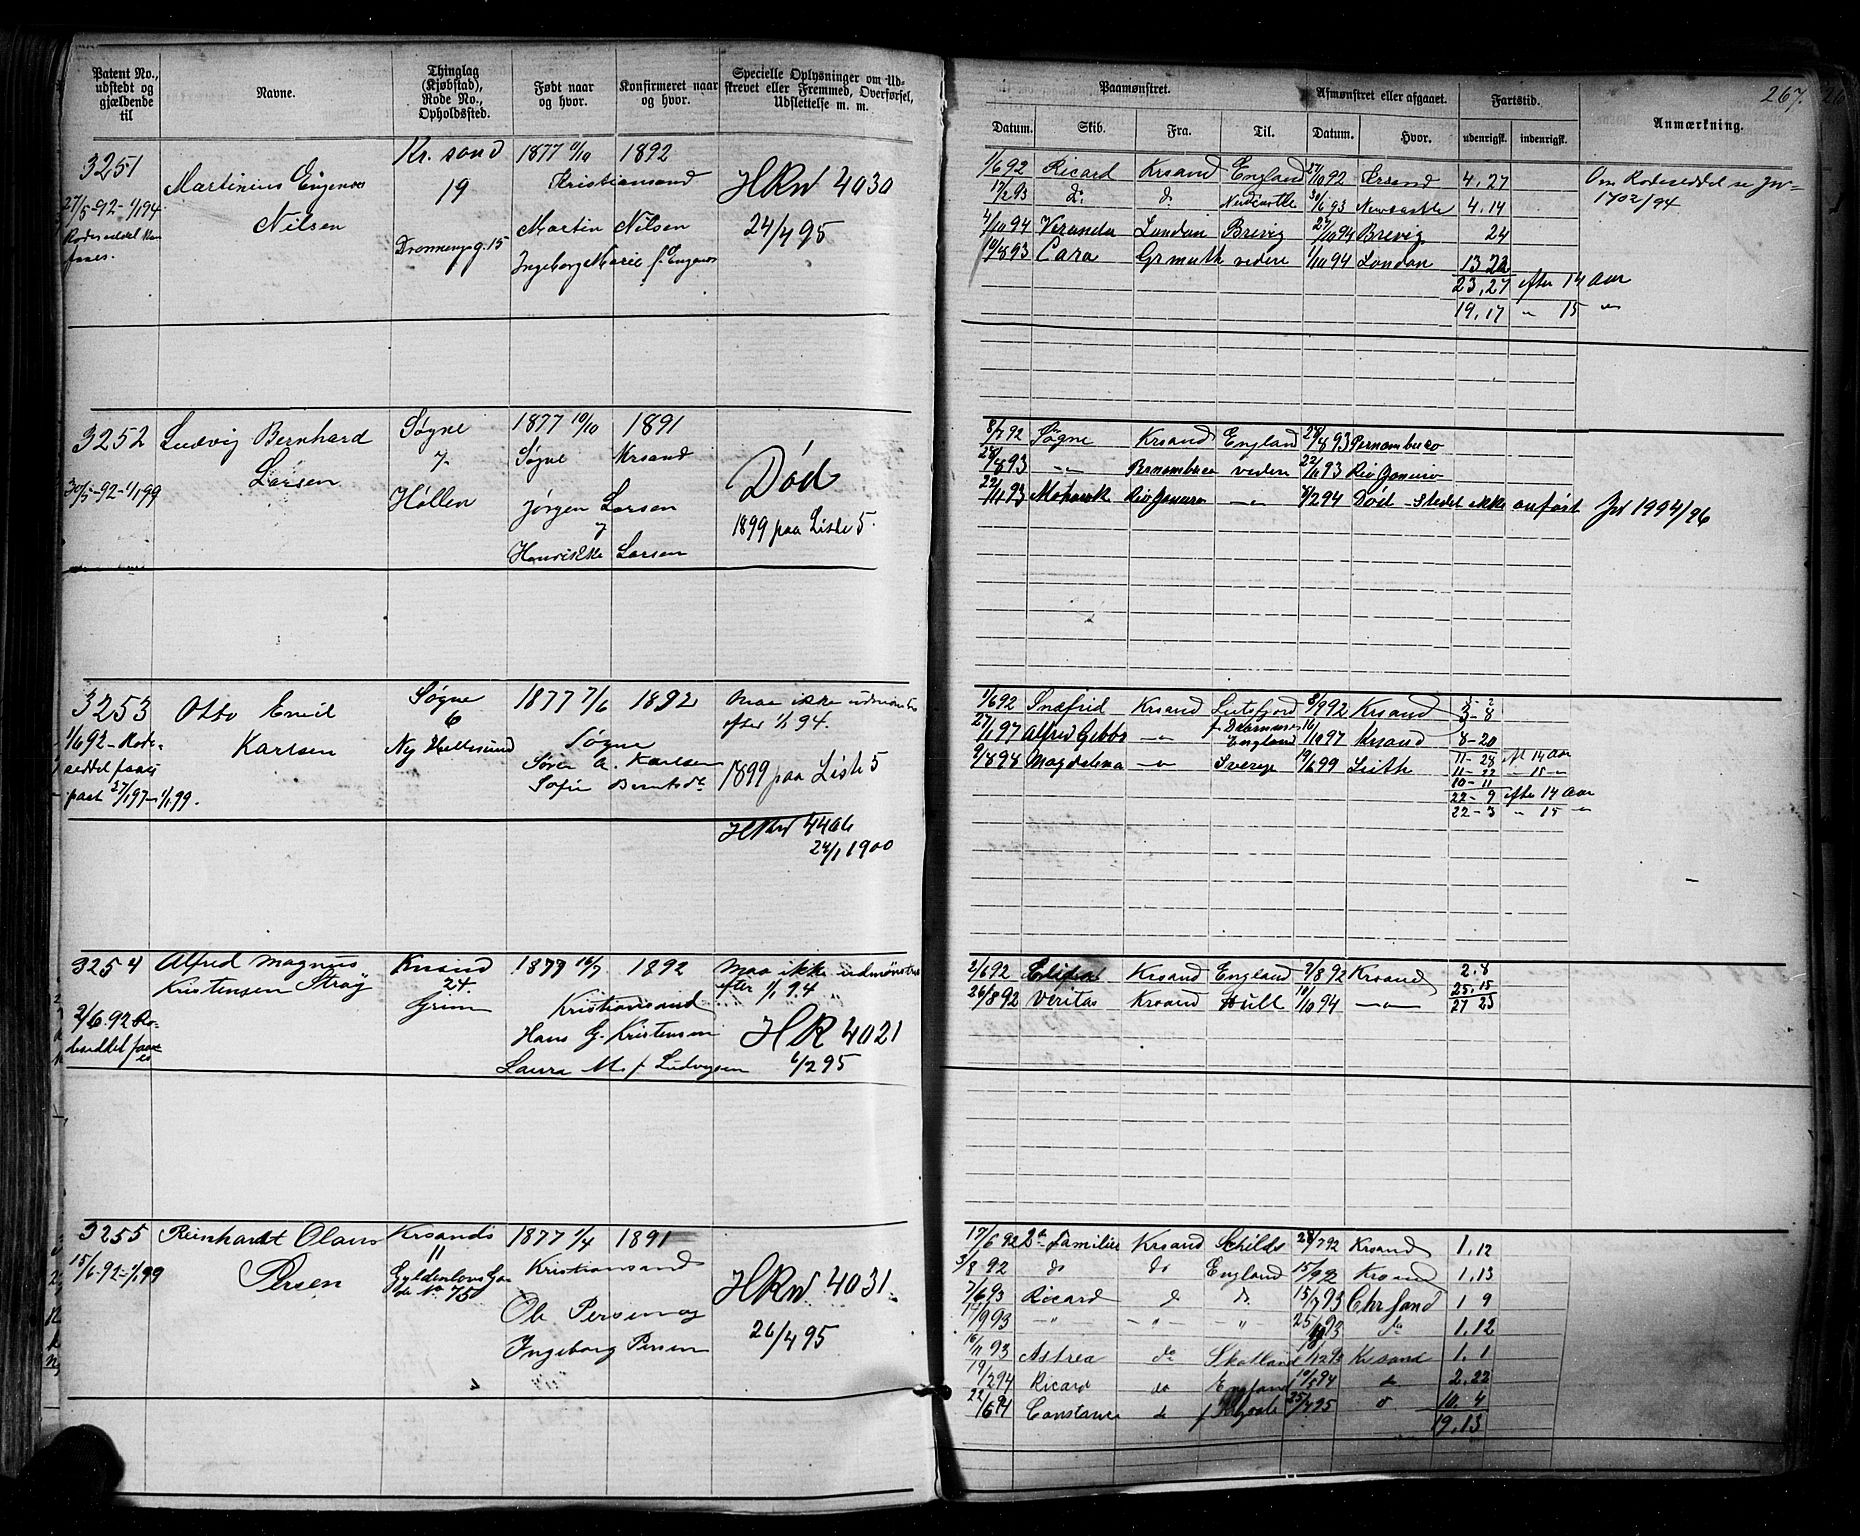 267.
Patent No., udstedt og gjældende til
Navne.
Thinglag (Kjøbstad), Rode No., Opholdssted.
Født naar og hvor.
Konfirmeret naar og hvor.
Specielle Oplysninger om Udskrevet eller Fremmed, Overførsel, Udslettelse m. m.
Paamønstret.
Afmønstret eller afgaaet.
Fartstid.
Anmærkning.
Datum. Skib. Fra. Til. Datum. Hvor. udenrigsk. indenrigsk.
3251
27/5-92-1/1 94
Martinius
Nilsen
Kr. sand
19
Dronningg. 15
1877 1892
Kristiansand
Martin Nilsen
Ingeborg Marie f.
HRW 4030
24/4 95
1/6 92 Ricard Krsand England 27/10 92 Krsand 4.27
17/2 93 do do Newcastle 30/6 93 Newcastle 4.14
4/10 94 Veranda London Brevig 27/10 94 Brevig 24
London 13 22
23.27 efter 14 Aar
19.17 " 15 "
Om Rodeseddel se
1702/94
3252
30/5-92-1/1 99
Ludvig Bernhard
Larsen
Søgne
7
Høllen
1877 19/10 1891
Søgne Krsand
Jørgen Larsen
Larsen
Død
1899 paa Liste 5.
8/7 92 Søgne Krsand England 28/8 93 Pernambuco
28/8 93 Pernambuco videre 22/11 93 Rio Janeiro
22/11 93 Mohawk Rio Janeiro 94 Død - Stedet ikke anført
Jnl 1994/96
3253
1/6 92 - Rode-
seddel faaes
paat 27/1 97-1/1 99.
Otto Emil
Karlsen
Søgne
6
Ny Hellesund
1877 7/6 1892
Søgne
Søren A. Karlsen
Sofie
Maa ikke udmønstres
efter 1/1 94.
1899 paa Liste 5
HRW 4406
24/1 1900
1/6 92 Snæfrid Krsand 8/9 92 Krsand 3-8
27/1 97 Alfred Gibbs England 16/10 97 Krsand 8-20
9/8 98 Magdalena Sverige 19/6 99 Leith 11-28 eft 14 Aar
11-22 " 15 "
10-11
22-9 efter 14 Aar
22-3 " 15 "
3254
2/6 92 Ro-
deseddel faaes
Alfred Magnus
Kristensen Stray
Krsand
24.
Grim
1877 16/7 1892
Kristiansand
Hans G. Kristensen
Laura M. f. Ludvigsen
Maa ikke udmønstres
efter 1/1 94
HR 4021
6/2 95
2/6 92 Krsand England 9/8 92 Krsand 2.8
26/8 92 Veritas Krsand Hull 10/10 94 25.15
27 23
3255
15/6-92-1/1 99
Reinhardt Olaus
Persen
Krsands
11
Gyldenløvs Ga-
de No 75
1877 1/4 1891
Kristiansand
Ole Persen og
Ingeborg Persen
HRW 4031.
26/4 95
17/6 92 Familie Krsand 28/7 92 Krsand 1.12
3/8 92 do do England 15/9 92 Krsand 1.13
7/6 93 Ricard do do 15/7 93 Chrsand 1 9
14/9 93 1.12
16/11 93 Astrea do Skotland Krsand 1.1
19/2 94 Ricard do England 2.22
22/6 94 Constance do 25/4 95 10.4
19.13